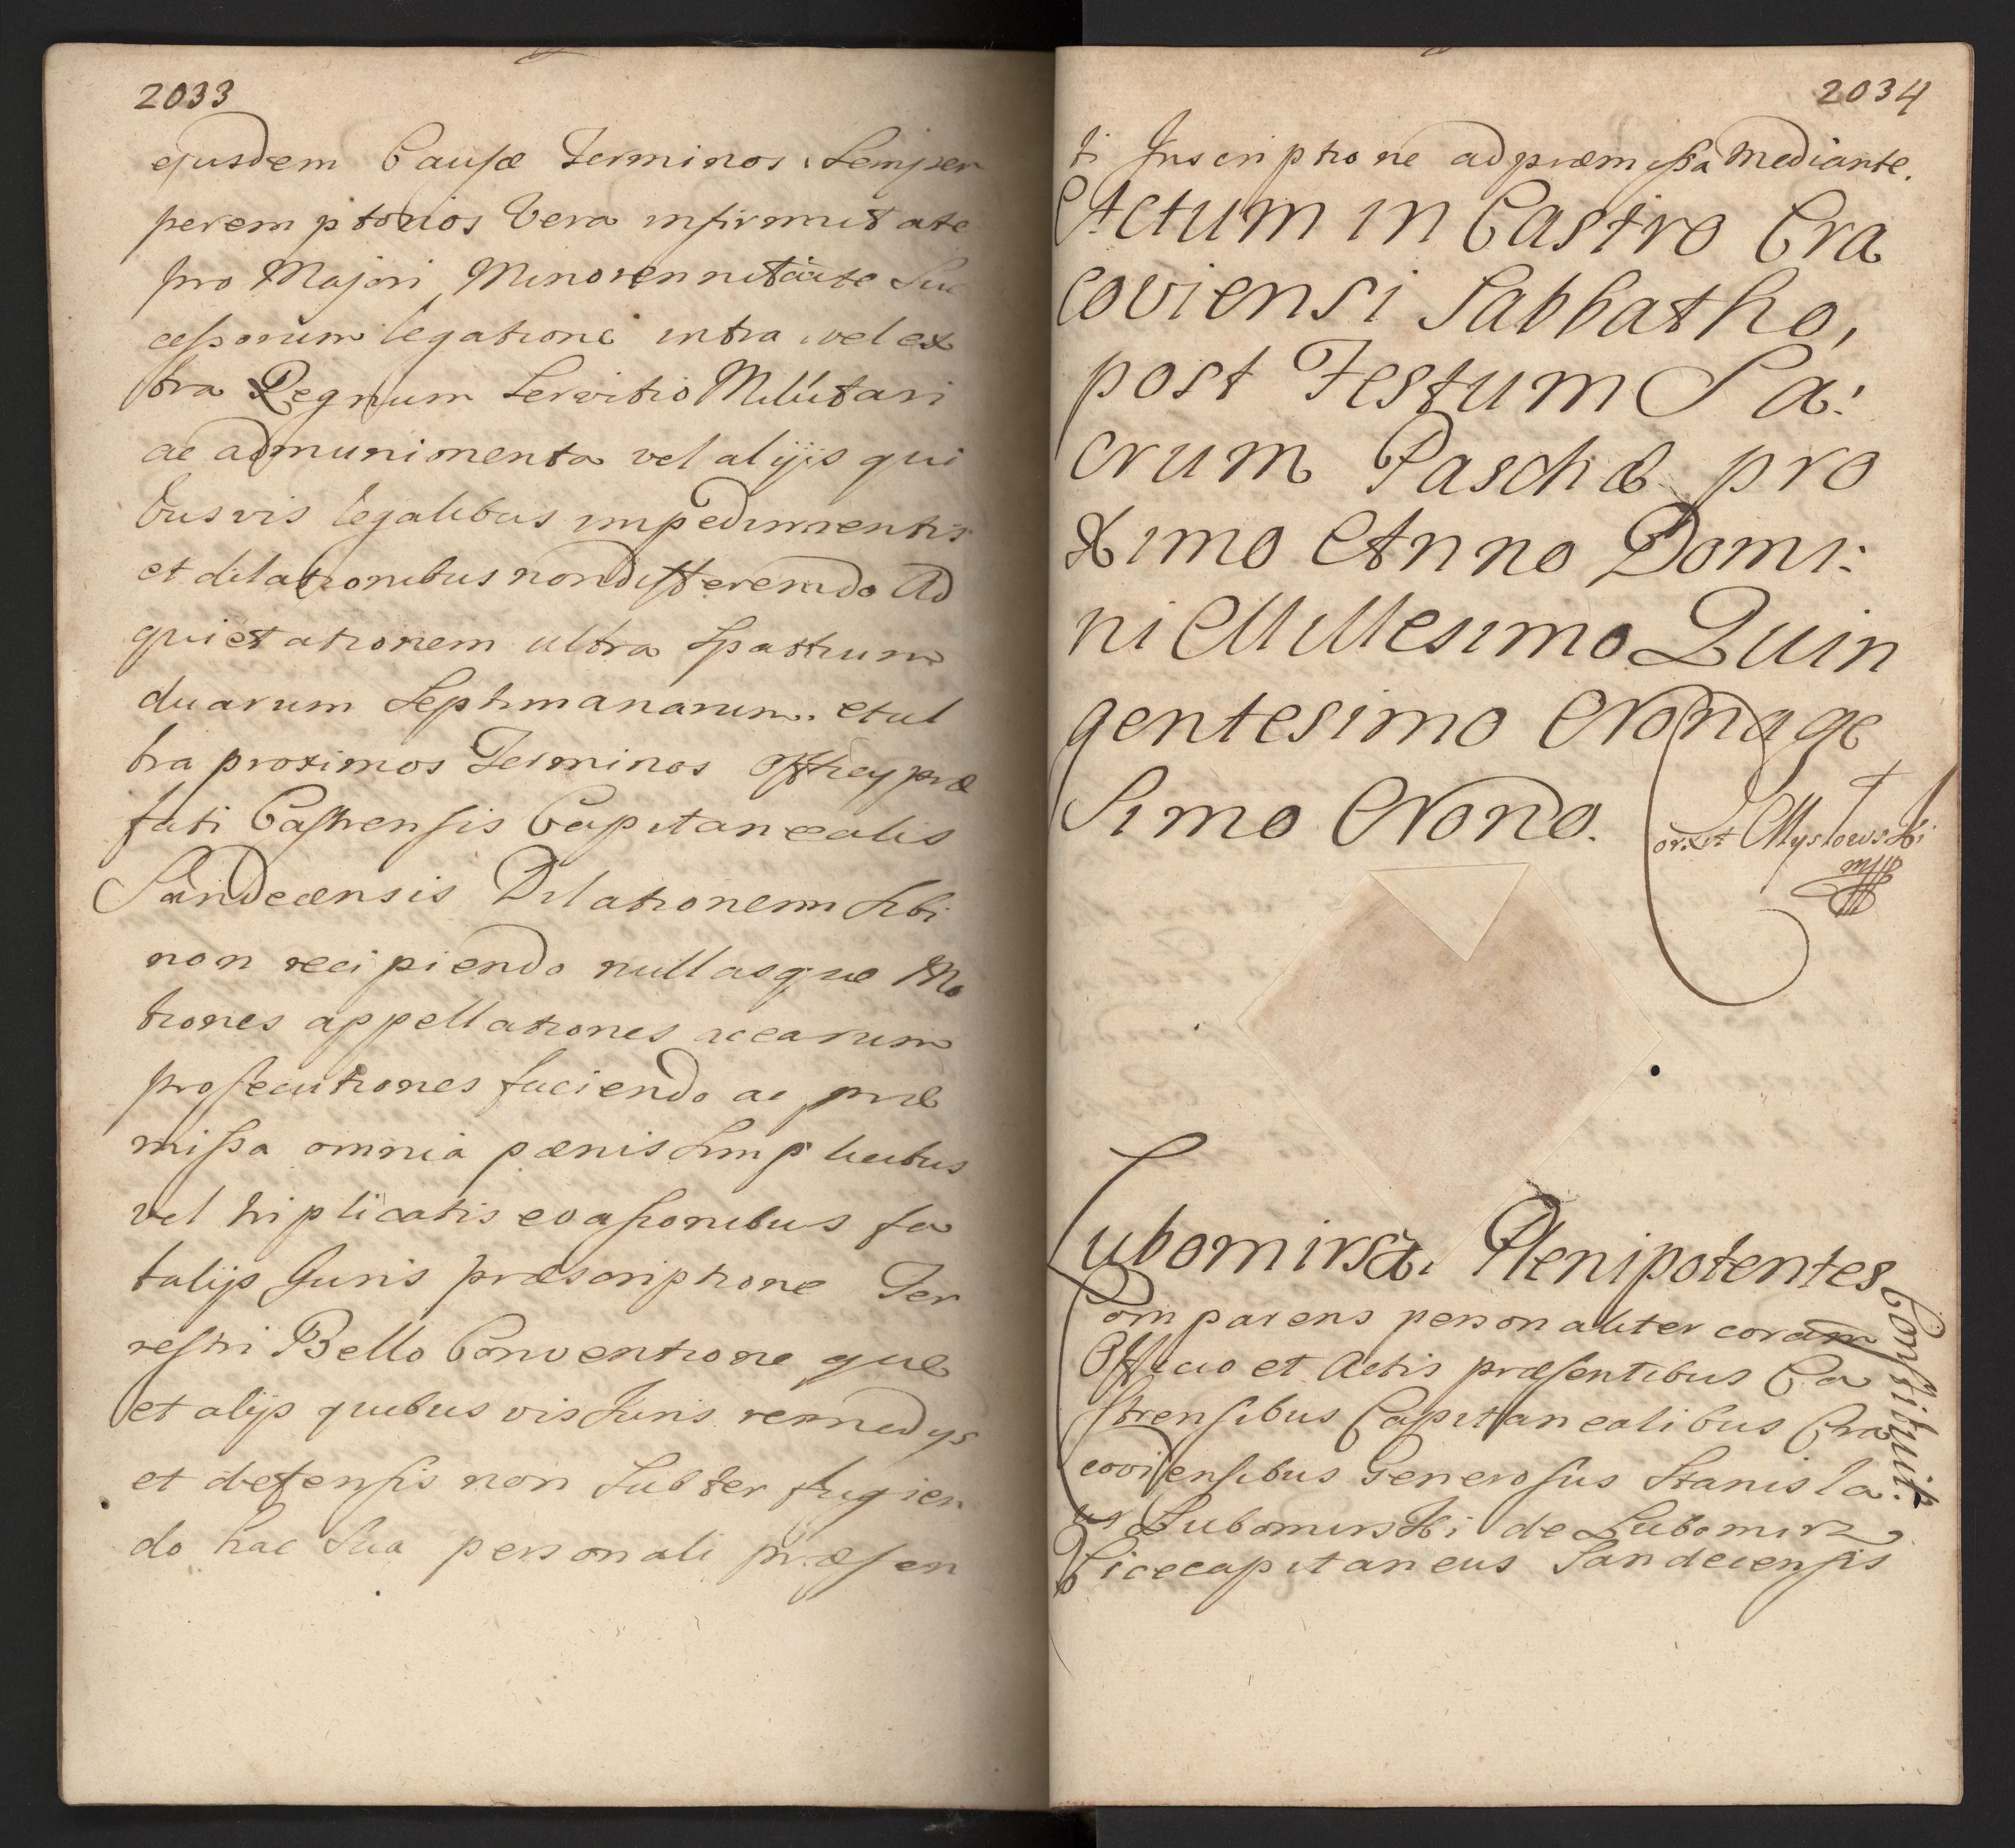 2033
ejusdem Causæ Terminos Semper
peremptorios Vera infirmitate
pro Majori Minorennitate Suc
cessorum legatione intra vel ex
tra Regnum Servitio Militari
ac ad munimenta vel alijs qui
busvis legalibus impedimentis
et dilationibus non differendo Ad
quietationem ultra Spatium
duarum Septimanarum et ul
tra proximos Terminos Officij præ
fati Castrensis Capitanealis
Sandecensis Dilationem Sibi
non recipiendo nullasque Mo
tiones appellationes ac earum
prosecutiones faciendo ac præ
missa omnia pænis Simplicibus
vel triplicatis evasionibus fa
talijs Juris præscriptione Ter
restri Bello Conventione que
et alijs quibus vis Juris remedijs
et defensis non Subter fugien
do hac Sua personali præsen
2034
ti Inscriptione ad præmissa mediante.
Actum in Castro Cra
coviensi Sabbatho,
post Festum Sa:
crum Paschæ pro
ximo Anno Domi:
ni Millesimo Quin
gentesimo Nonage
Simo Nono.
Mystowski
mpp
Lubomirsci Plenipotentes
Constituit
Comparens personaliter coram
Officio et Actis præsentibus Ca
strensibus Capitanealibus Cra
coviensibus Generosus Stanisla:
us Lubomirski de Lubomirz
Vicecapitaneus Sandecensis